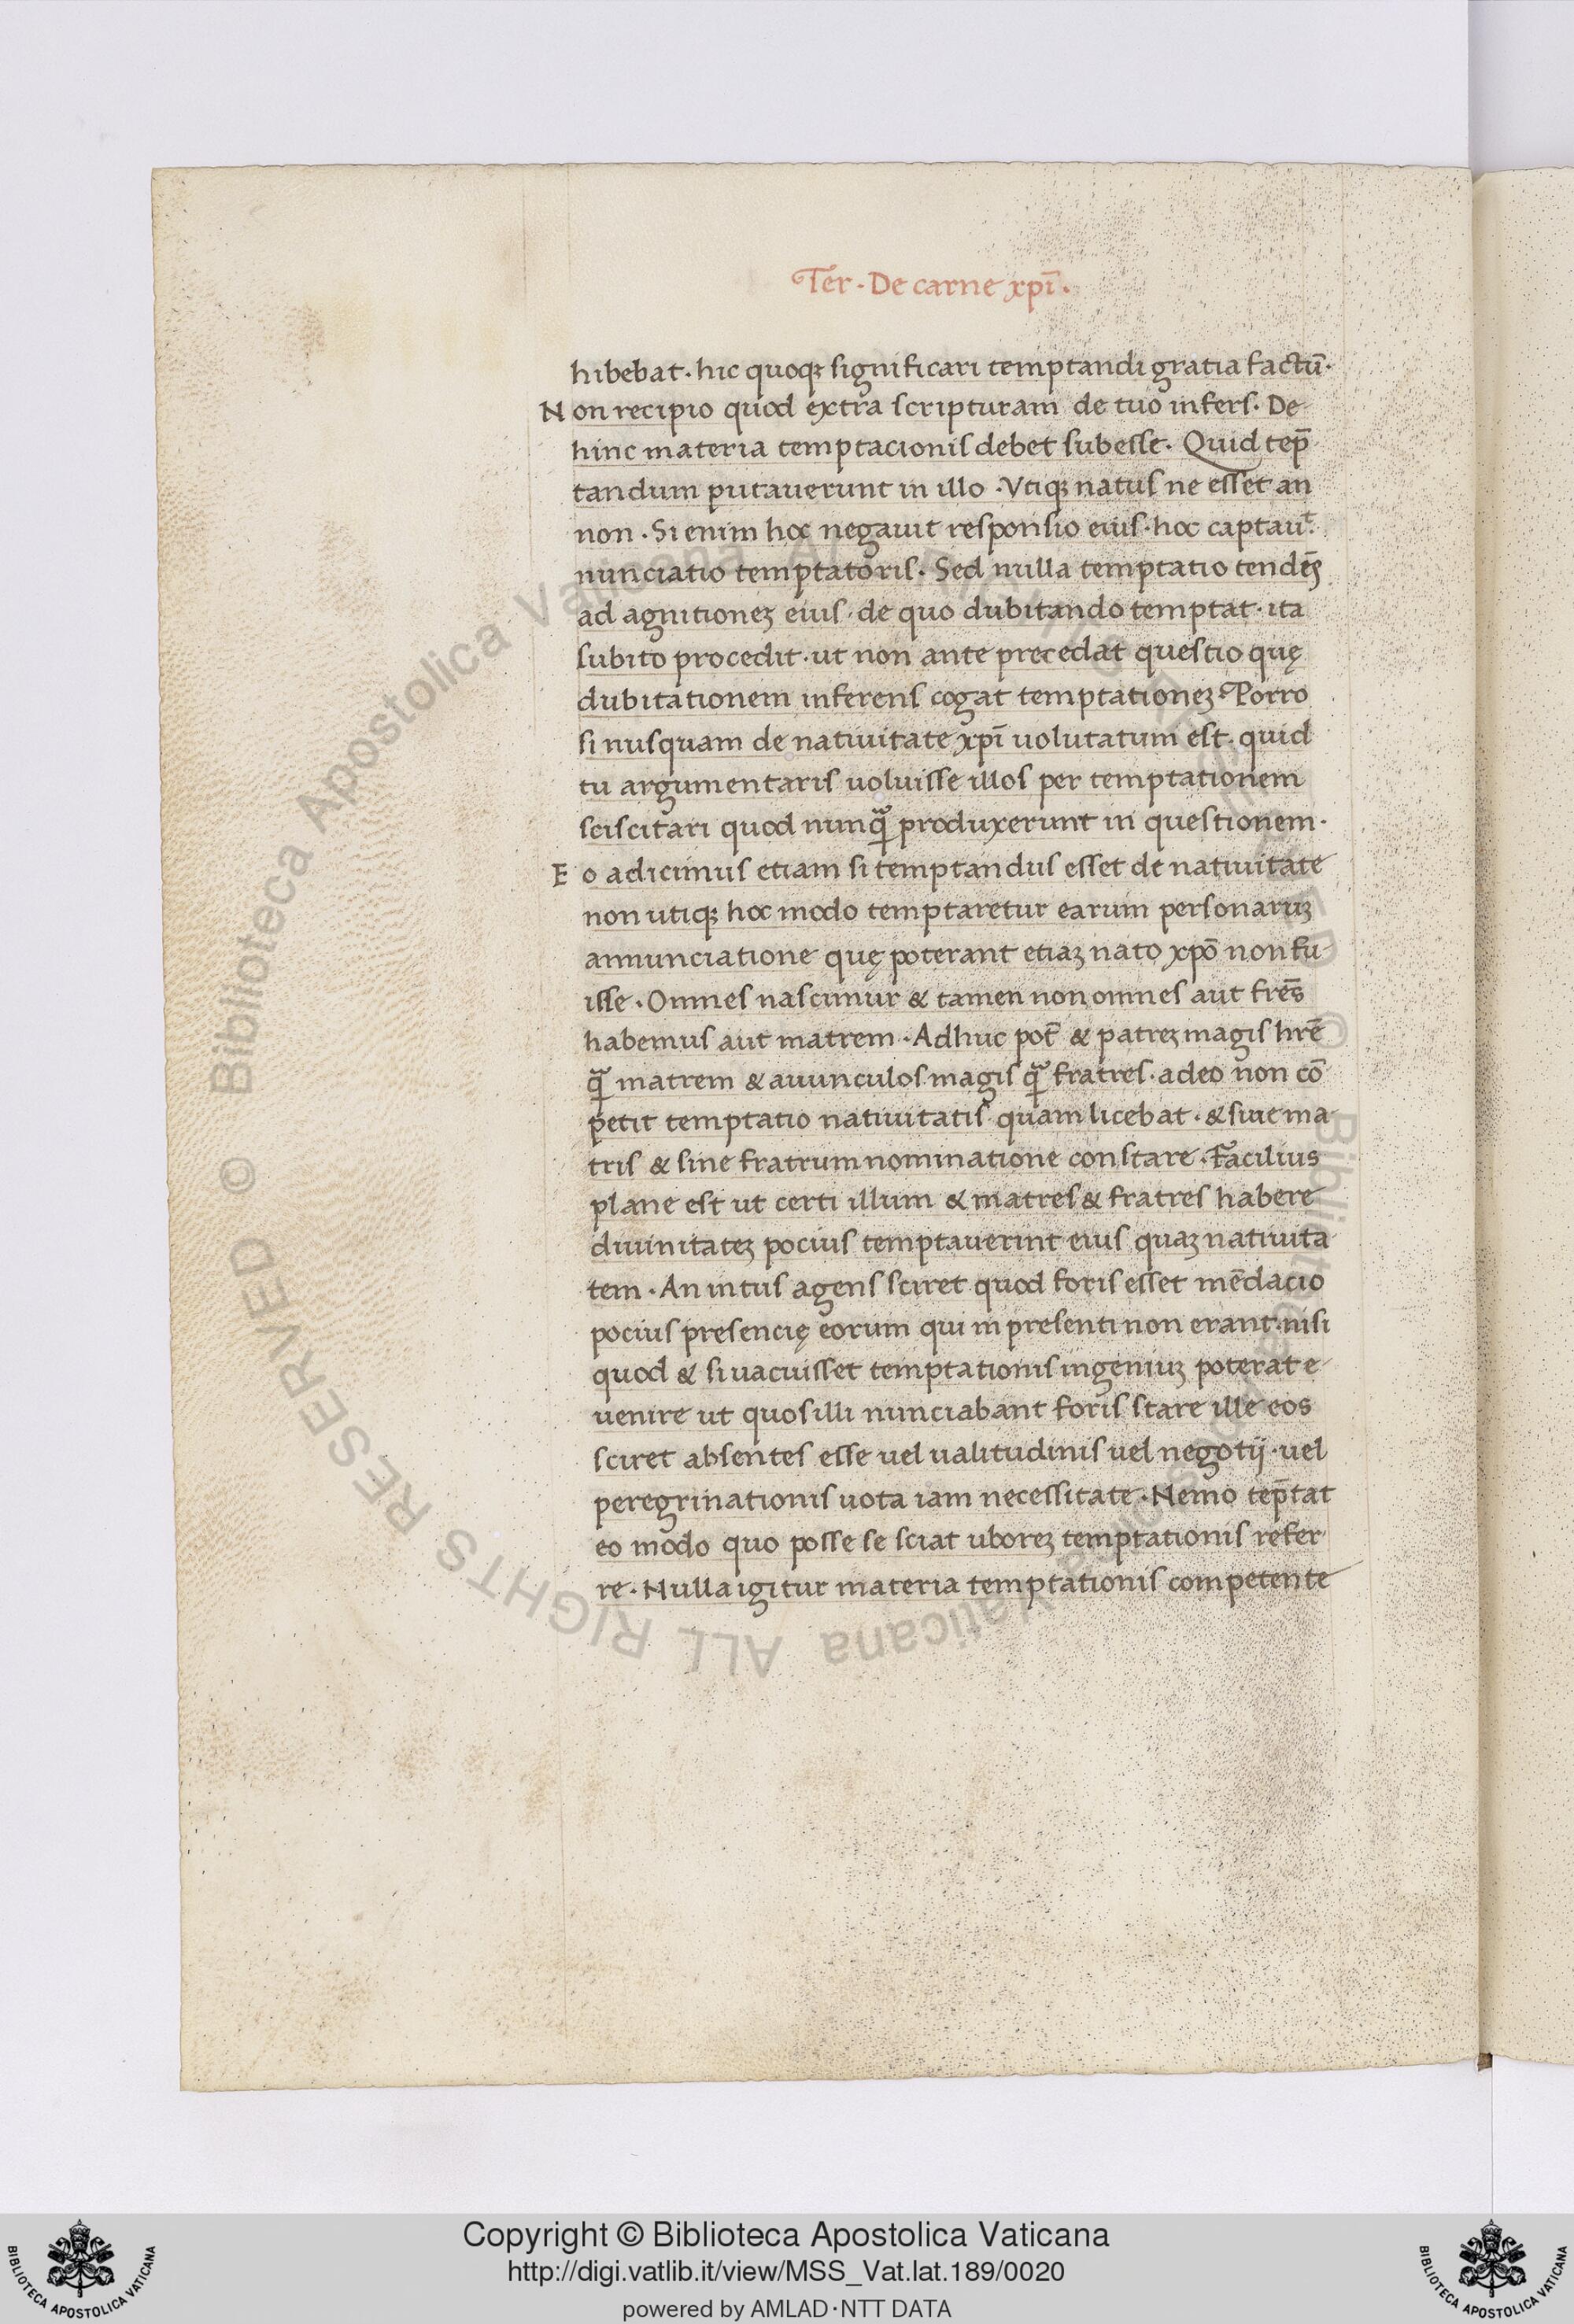 Ter · De carne xpi̅ ·
hibebat · hic quoqꝫ significari temptandi gratia factu̅ ·
Non recipio quod extra scripturam de tuo infers · De
hinc materia temptacionis debet subesse · Quid tep̅
tandum putauerunt in illo · Vtiqꝫ natus ne esset an
non · Si enim hoc negauit responsio eius · hoc captauᵗ
nunciatio temptatoris · Sed nulla temptatio tende̅s
ad agnitioneꝫ eius · de quo dubitando temptat · ita
subito procedit · ut non ante precedat questio quę
dubitationem inferens cogat temptationeꝫ · Porro
si nusquam de natiuitate xpi̅ uolutatum est · quid
tu argumentaris uoluisse illos per temptationem
sciscitari quod nunqᷓ produxerunt in questionem ·
Eo adicimus etiam si temptandus esset de natiuitate
non utiqꝫ hoc modo temptaretur earum personaruꝫ
annunciatione quę poterant etiaꝫ nato xpo̅ non fu
isse · Omnes nascimur & tamen non omnes aut fre̅s
habemus aut matrem · Adhuc pot̅ & patreꝫ magis hre̅
qᷓ matrem & auunculos magis qᷓ fratres · adeo non co̅
petit temptatio natiuitatis quam licebat · & siue ma
tris & sine fratrum nominatione constare · Facilius
plane est ut certi illum & matres & fratres habere
diuinitateꝫ pocius temptauerint eius quaꝫ natiuita
tem · An intus agens sciret quod foris esset me̅dacio
pocius presencię eorum qui in presenti non erant · nisi
quod & si uacuisset temptationis ingeniuꝫ poterat e
uenire ut quos illi nunciabant foris stare ille eos
sciret absentes esse uel ualitudinis uel negotij · uel
peregrinationis uota iam necessitate · Nemo tep̅tat
eo modo quo posse se sciat uboreꝫ temptationis refer
re · Nulla igitur materia temptationis competente
© Biblioteca Apostolica Vaticana ALL RIGHTS RESERVED
© Biblioteca Apostolica Vaticana ALL RIGHTS RESERVED
Copyright © Biblioteca Apostolica Vaticana
http://digi.vatlib.it/view/MSS_Vat.lat.189/0020
powered by AMLAD·NTT DATA
BIBLIOTECA APOSTOLICA VATICANA
BIBLIOTECA APOSTOLICA VATICANA